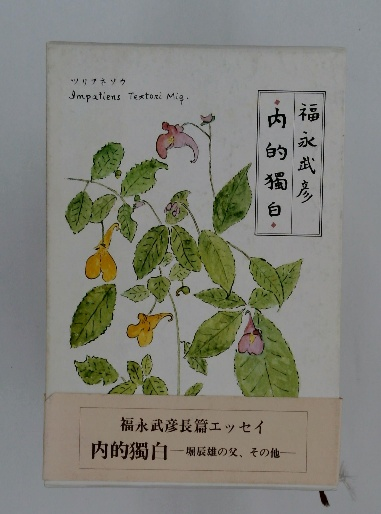 ツリフネソウ
Impatiens Textori Miq.
福永武彦
内的獨白
福永武彦長篇エッセイ
内的獨白─堀辰雄の父、その他─